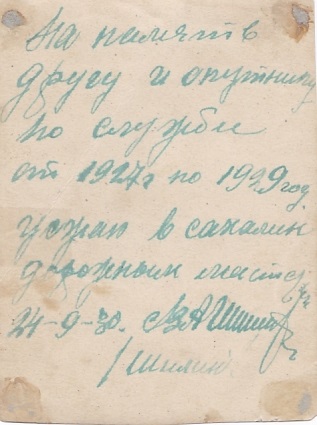 На память
другу и спутнику
по службе
от 1927г по 1929 год
уезжаю в сахалин
дорожным мастером
24-9-30.